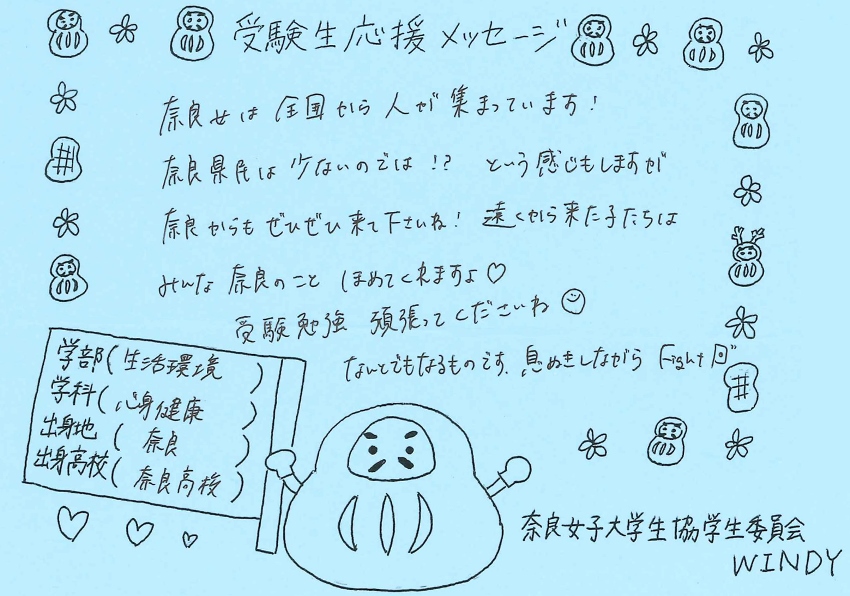 受験生応援メッセージ
奈良女は全国から人が集まっています！
奈良県民は少ないのでは!? という感じもしますが
奈良からもぜひぜひ来て下さいね！ 遠くから来た子たちは
みんな奈良のこと ほめてくれますよ♡
受験勉強 頑張ってくださいね
なんとでもなるものです。息ぬきしながら Fight
学部(生活環境)
学科(心身健康)
出身地(奈良)
出身高校(奈良高校)
奈良女子大学生協学生委員会
WINDY